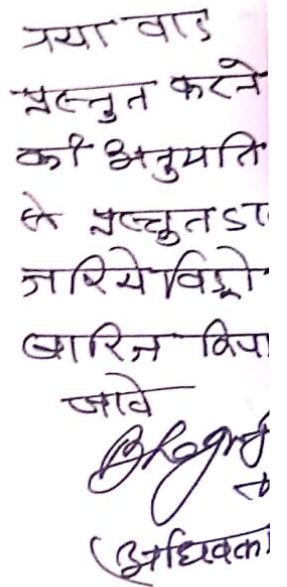 नया वाद
प्रस्तुत करने
की अनुमति
से प्रस्तुत
जरिये विड्रो
खारिज किया
जावे
(अधिवक्ता